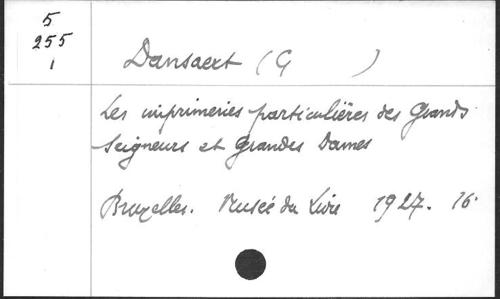 5
255
1
Dansaert (G )
Les imprimeries particulières des Grands
Seigneurs et Grandes Dames
Bruxelles. Musée du Livre 1927. 16°